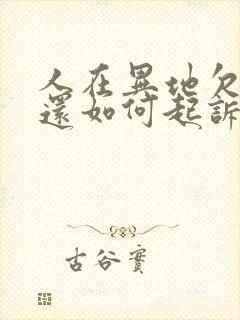 人在異地欠
還如何起訴
古谷實